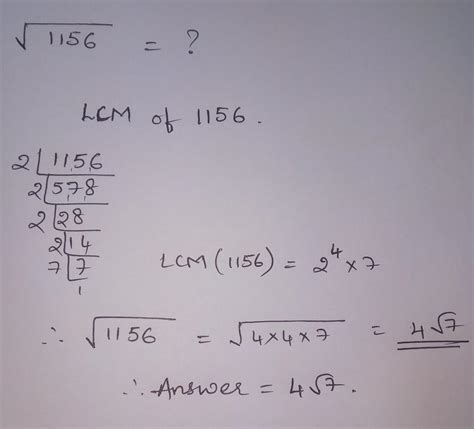 √1156 = ?
LCM of 1156.
2 | 1156
2 | 578
2 | 28
2 | 14
7 | 7
1
LCM (1156) = 2⁴ × 7
∴ √1156 = √4×4×7 = 4√7
∴ Answer = 4√7.